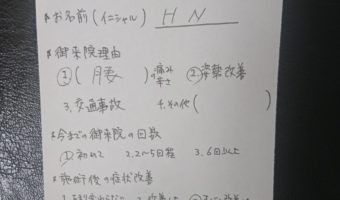 *お名前(イニシャル) H N
*御来院理由
①(腰)の痛み 辛さ ②姿勢改善
3.交通事故 4.その他( )
*今までの御来院の回数
①初めて 2.2~5回程 3.6回以上
*施術後の症状改善